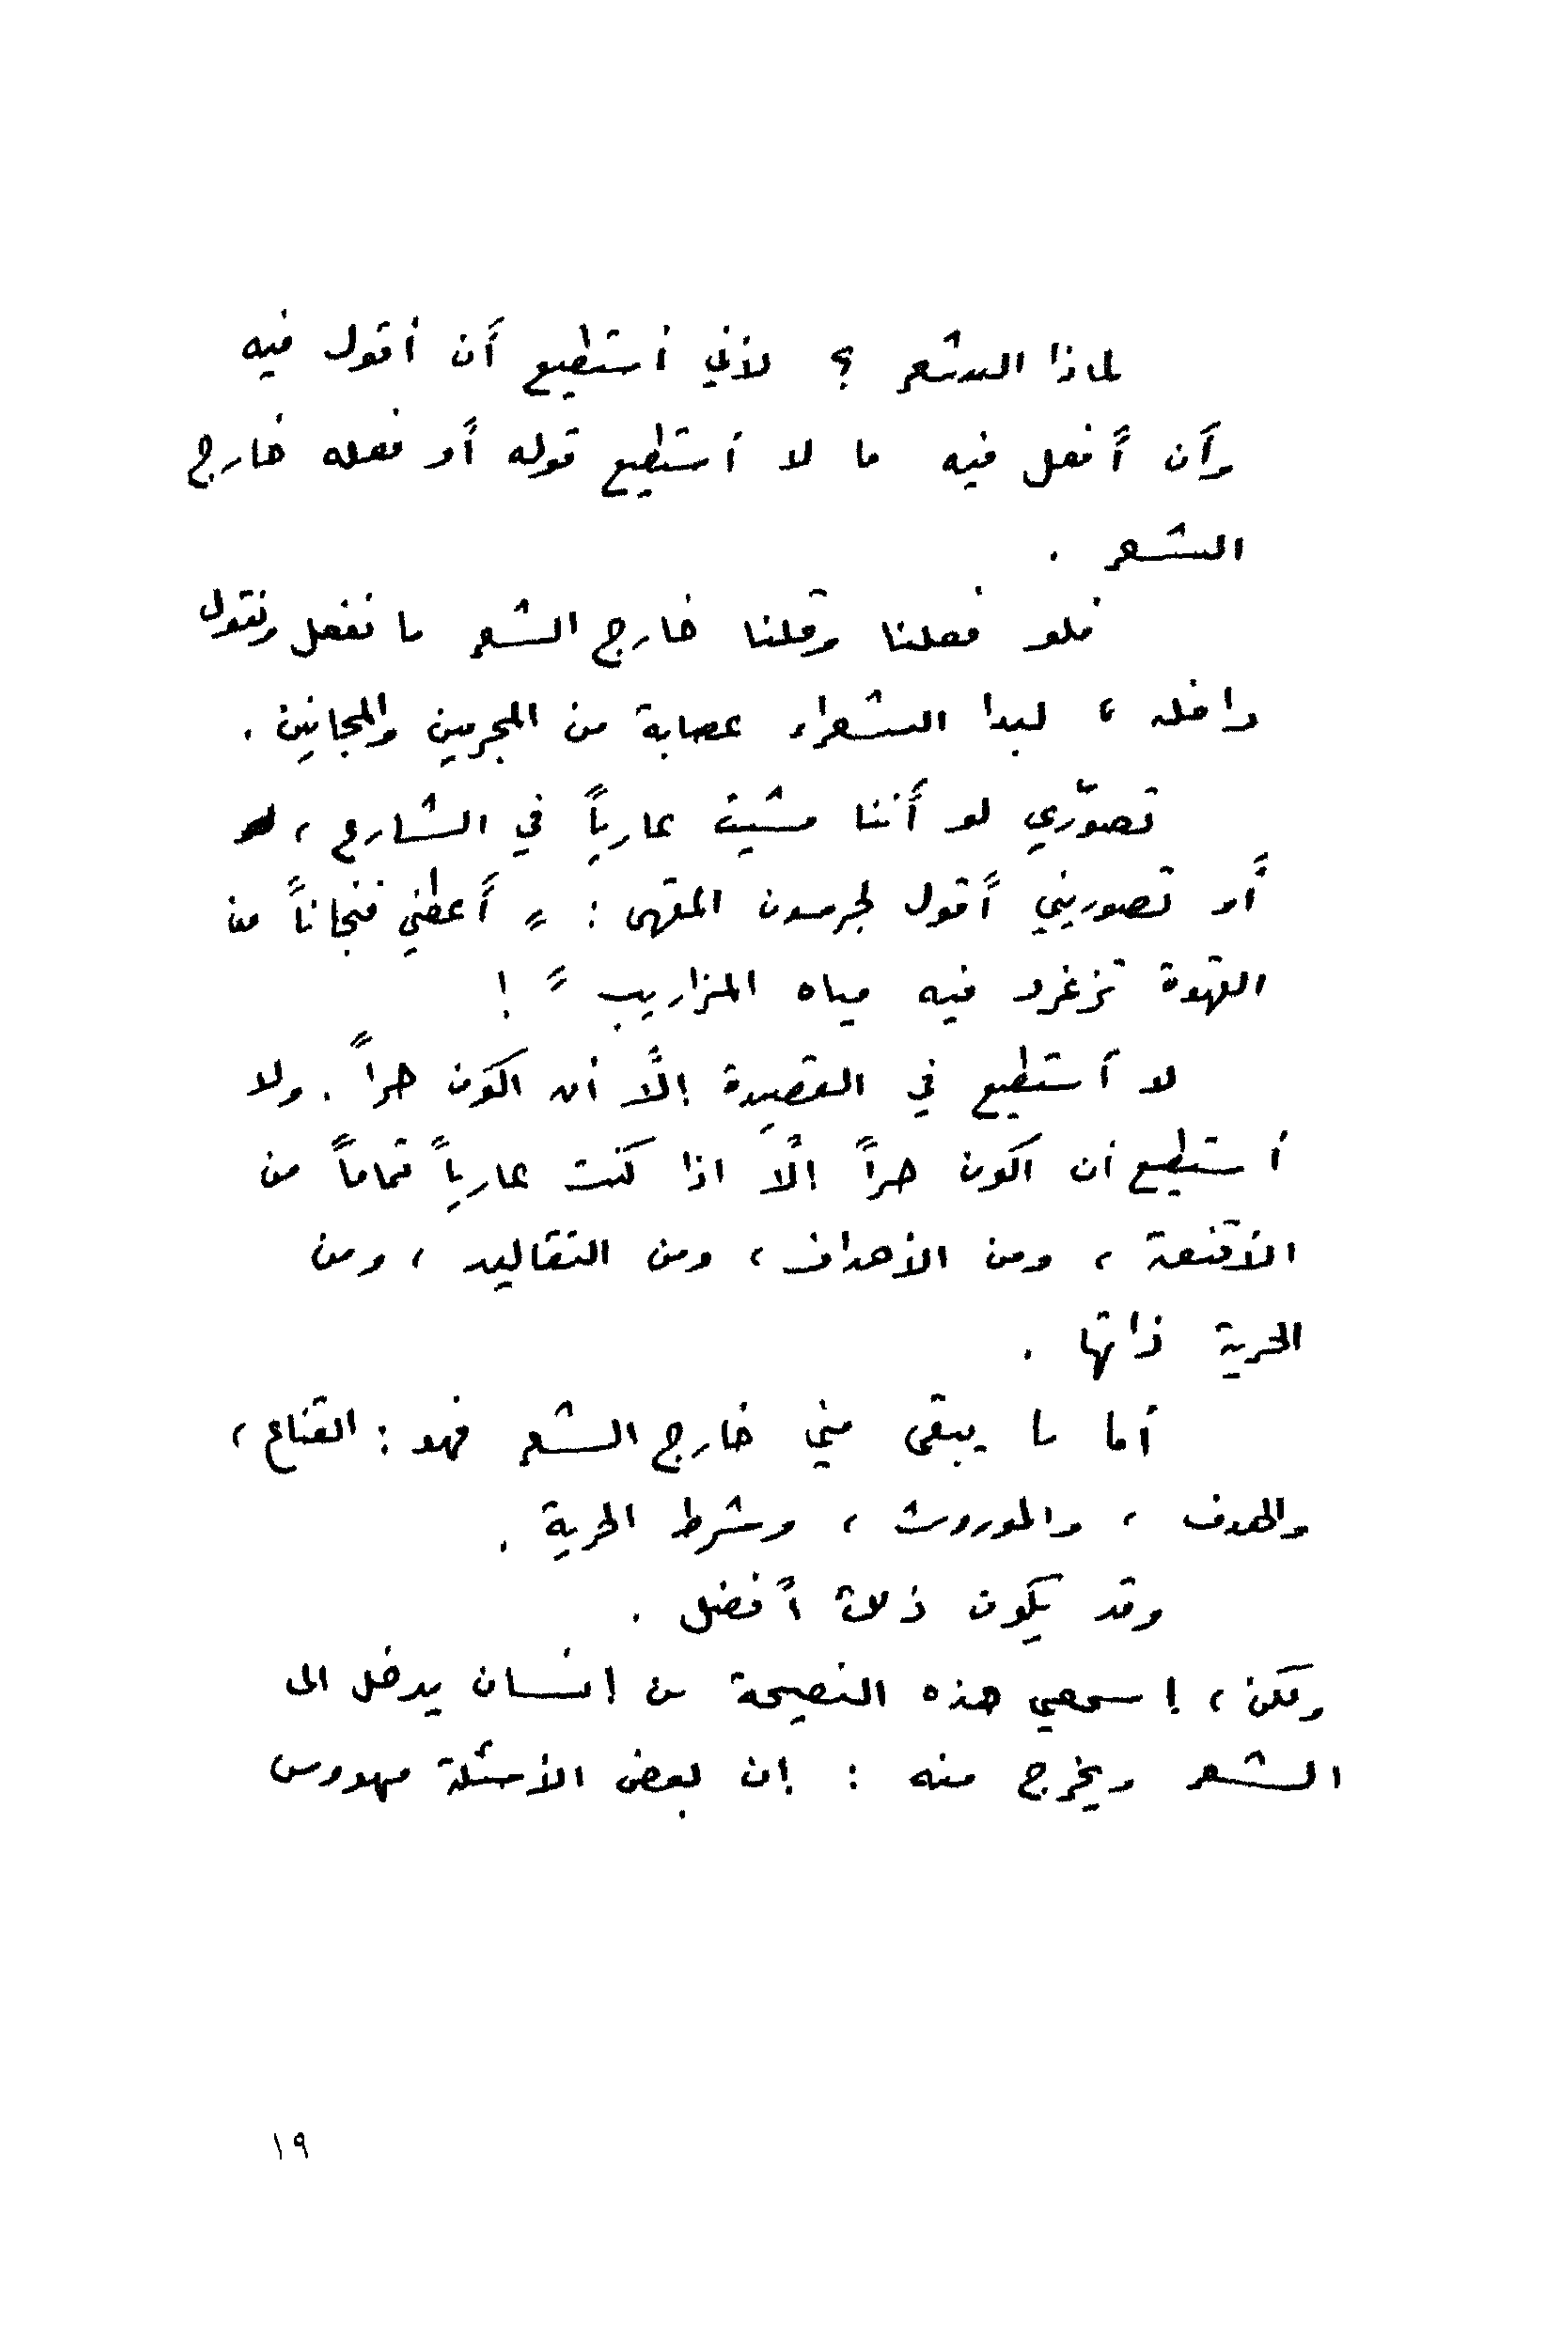 لماذا الشعر ؟ لأني أستطيع أن أقول فيه
وأن أفعل فيه ما لا أستطيع قوله أو فعله خارج
الشعر .
فلو فعلنا وقلنا خارج الشعر ما نفعل ونقول
داخله ، لبدا الشعراء عصابة من المجرمين والمجانين .
تصوّري لو أننا مشيت عارياً في الشارع ،
أو تصوريني أقول لجرسون المقهى : " أعطني فنجاناً من
القهوة تزغرد فيه مياه المزاريب " !
لا أستطيع في القصيدة إلّا أن اكون حراً . ولا
أستطيع ان اكون حراً إلّا اذا كنت عارياً تماماً من
الأقنعة ، ومن الأهداف ، ومن التقاليد ، ومن
الحرية ذاتها .
أما ما يبقى مني خارج الشعر فهو : القناع ،
والهدف ، والموروث ، وشرط الحرية .
وقد يكون ذلك أفضل .
ولكن ، إسمعي هذه النصيحة من إنسان يدخل الى
الشعر ويخرج منه : إن بعض الأسئلة مهووس
١٩